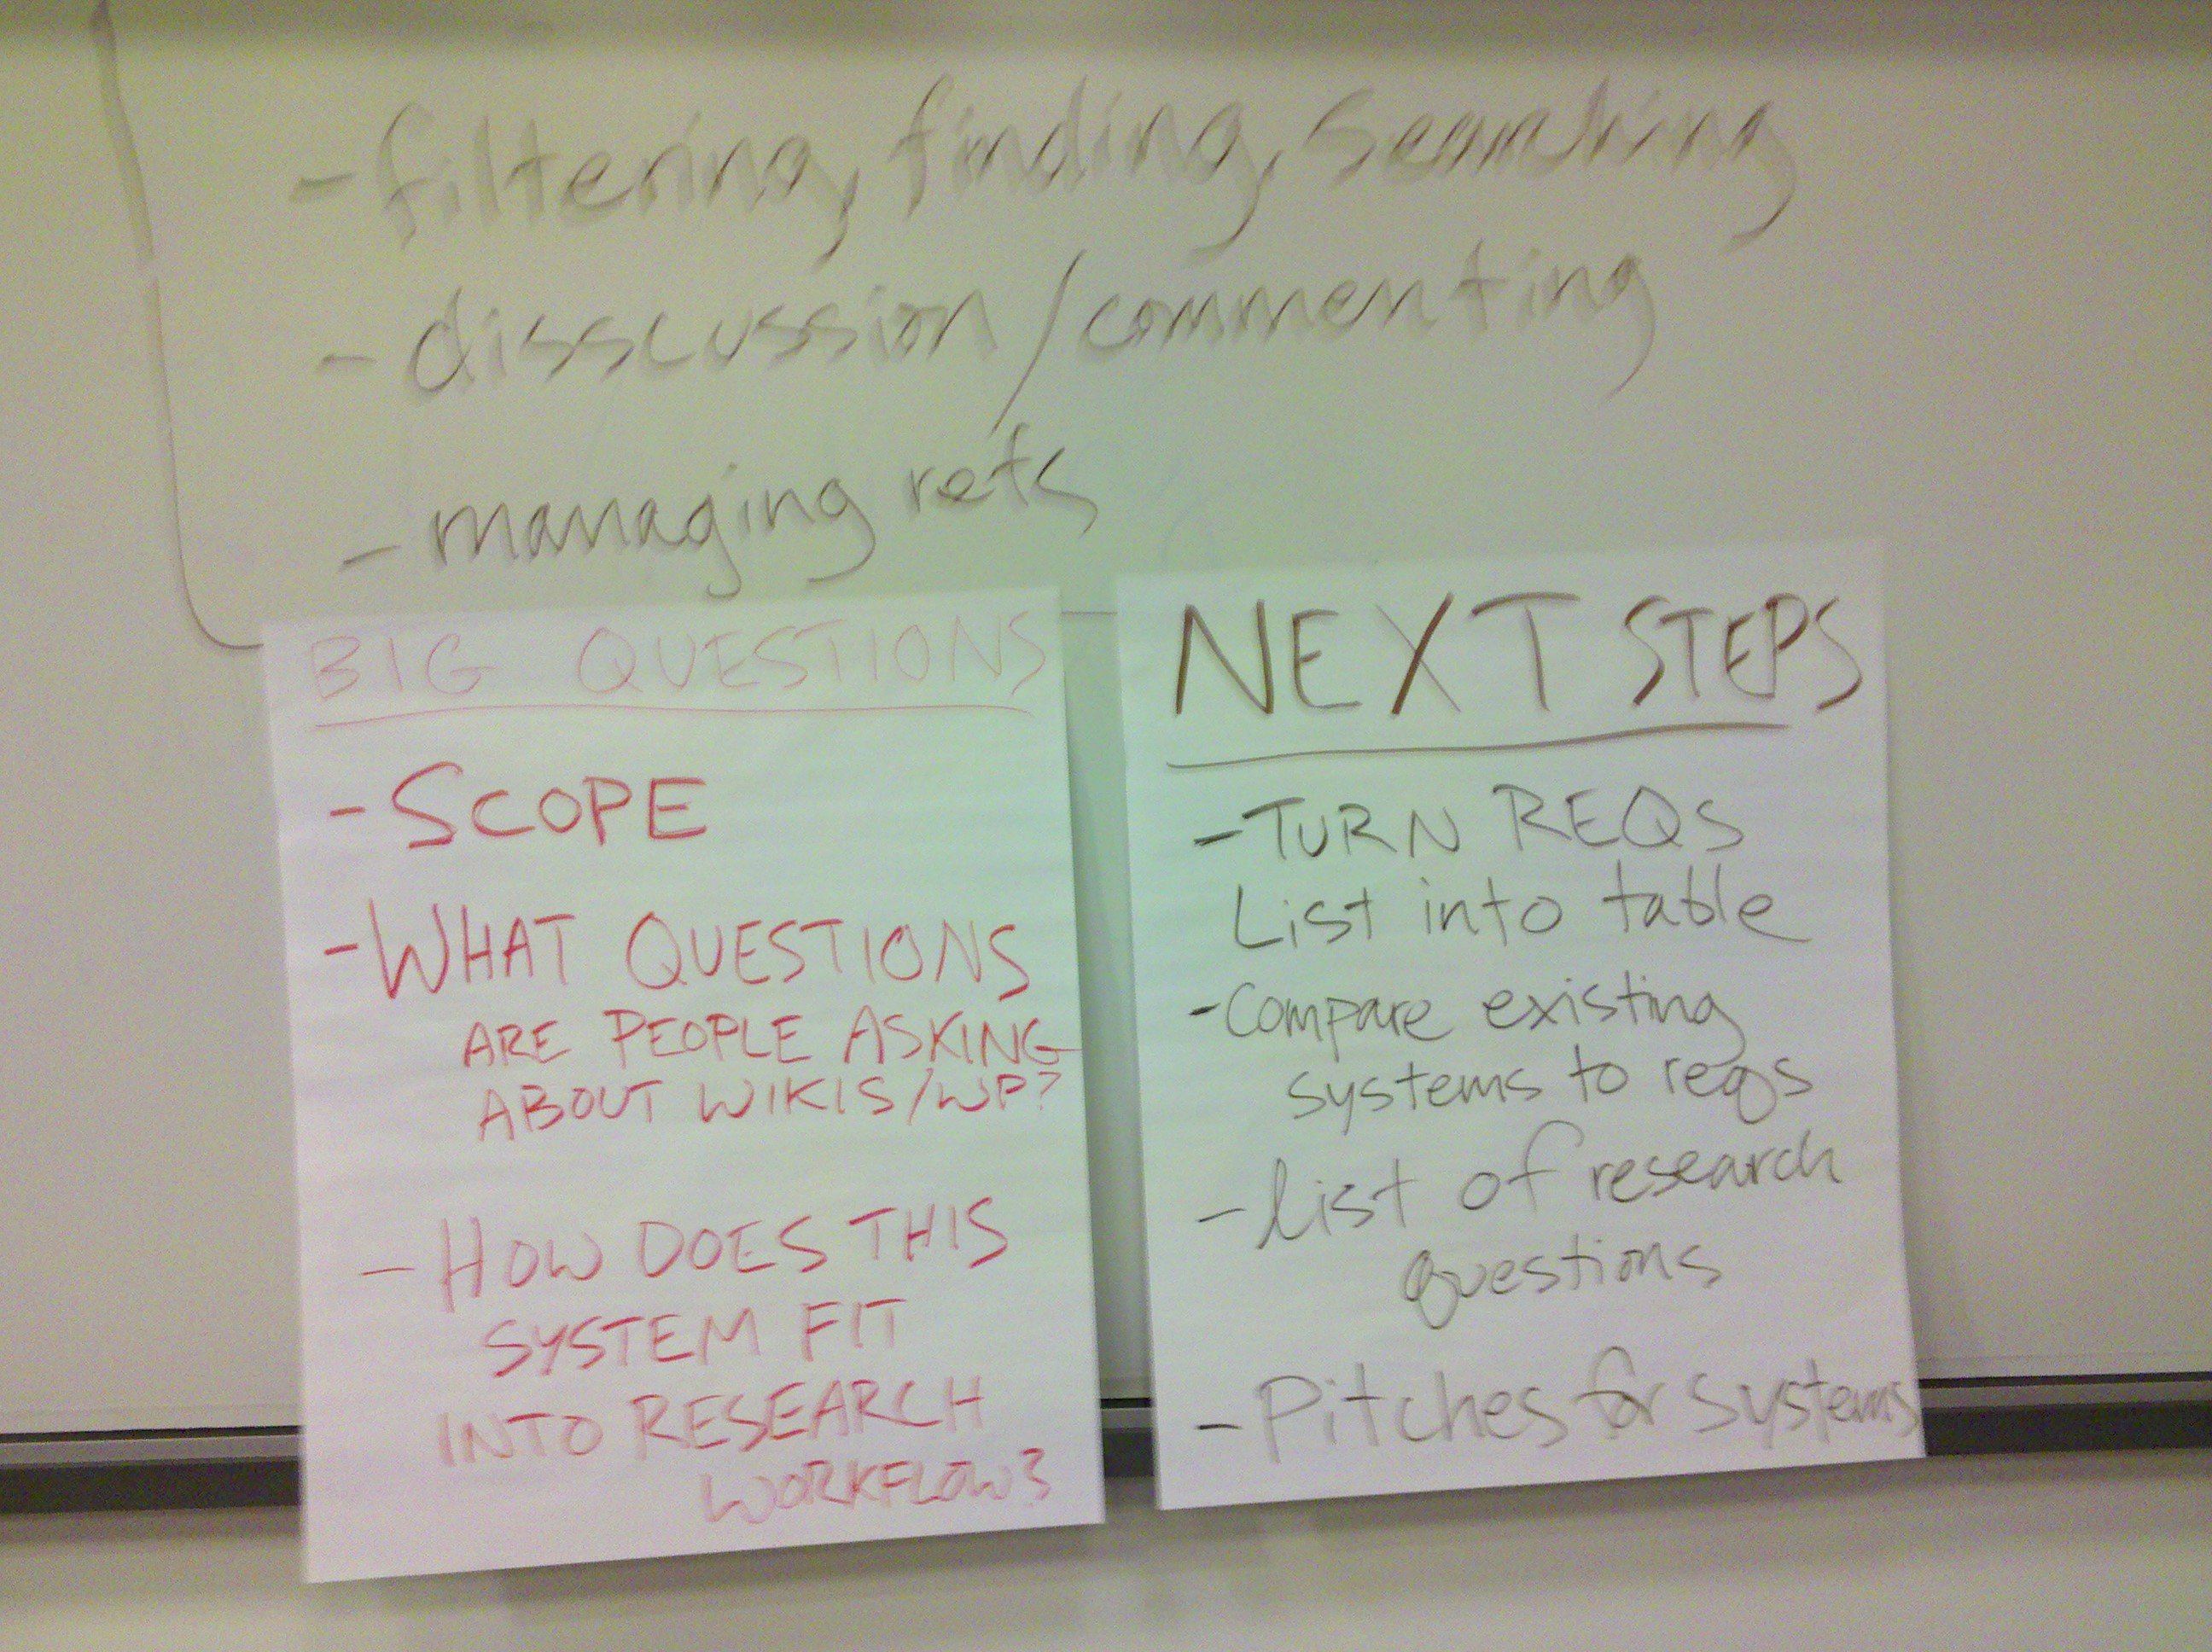 - filtering, finding, searching
- disscussion/commenting
- managing refs
BIG QUESTIONS
- SCOPE
- WHAT QUESTIONS
ARE PEOPLE ASKING
ABOUT WIKIS/WP?
- HOW DOES THIS
SYSTEM FIT
INTO RESEARCH
WORKFLOW?
NEXT STEPS
- TURN REQS
List into table
- Compare existing
systems to reqs
- list of research
questions
- Pitches for systems